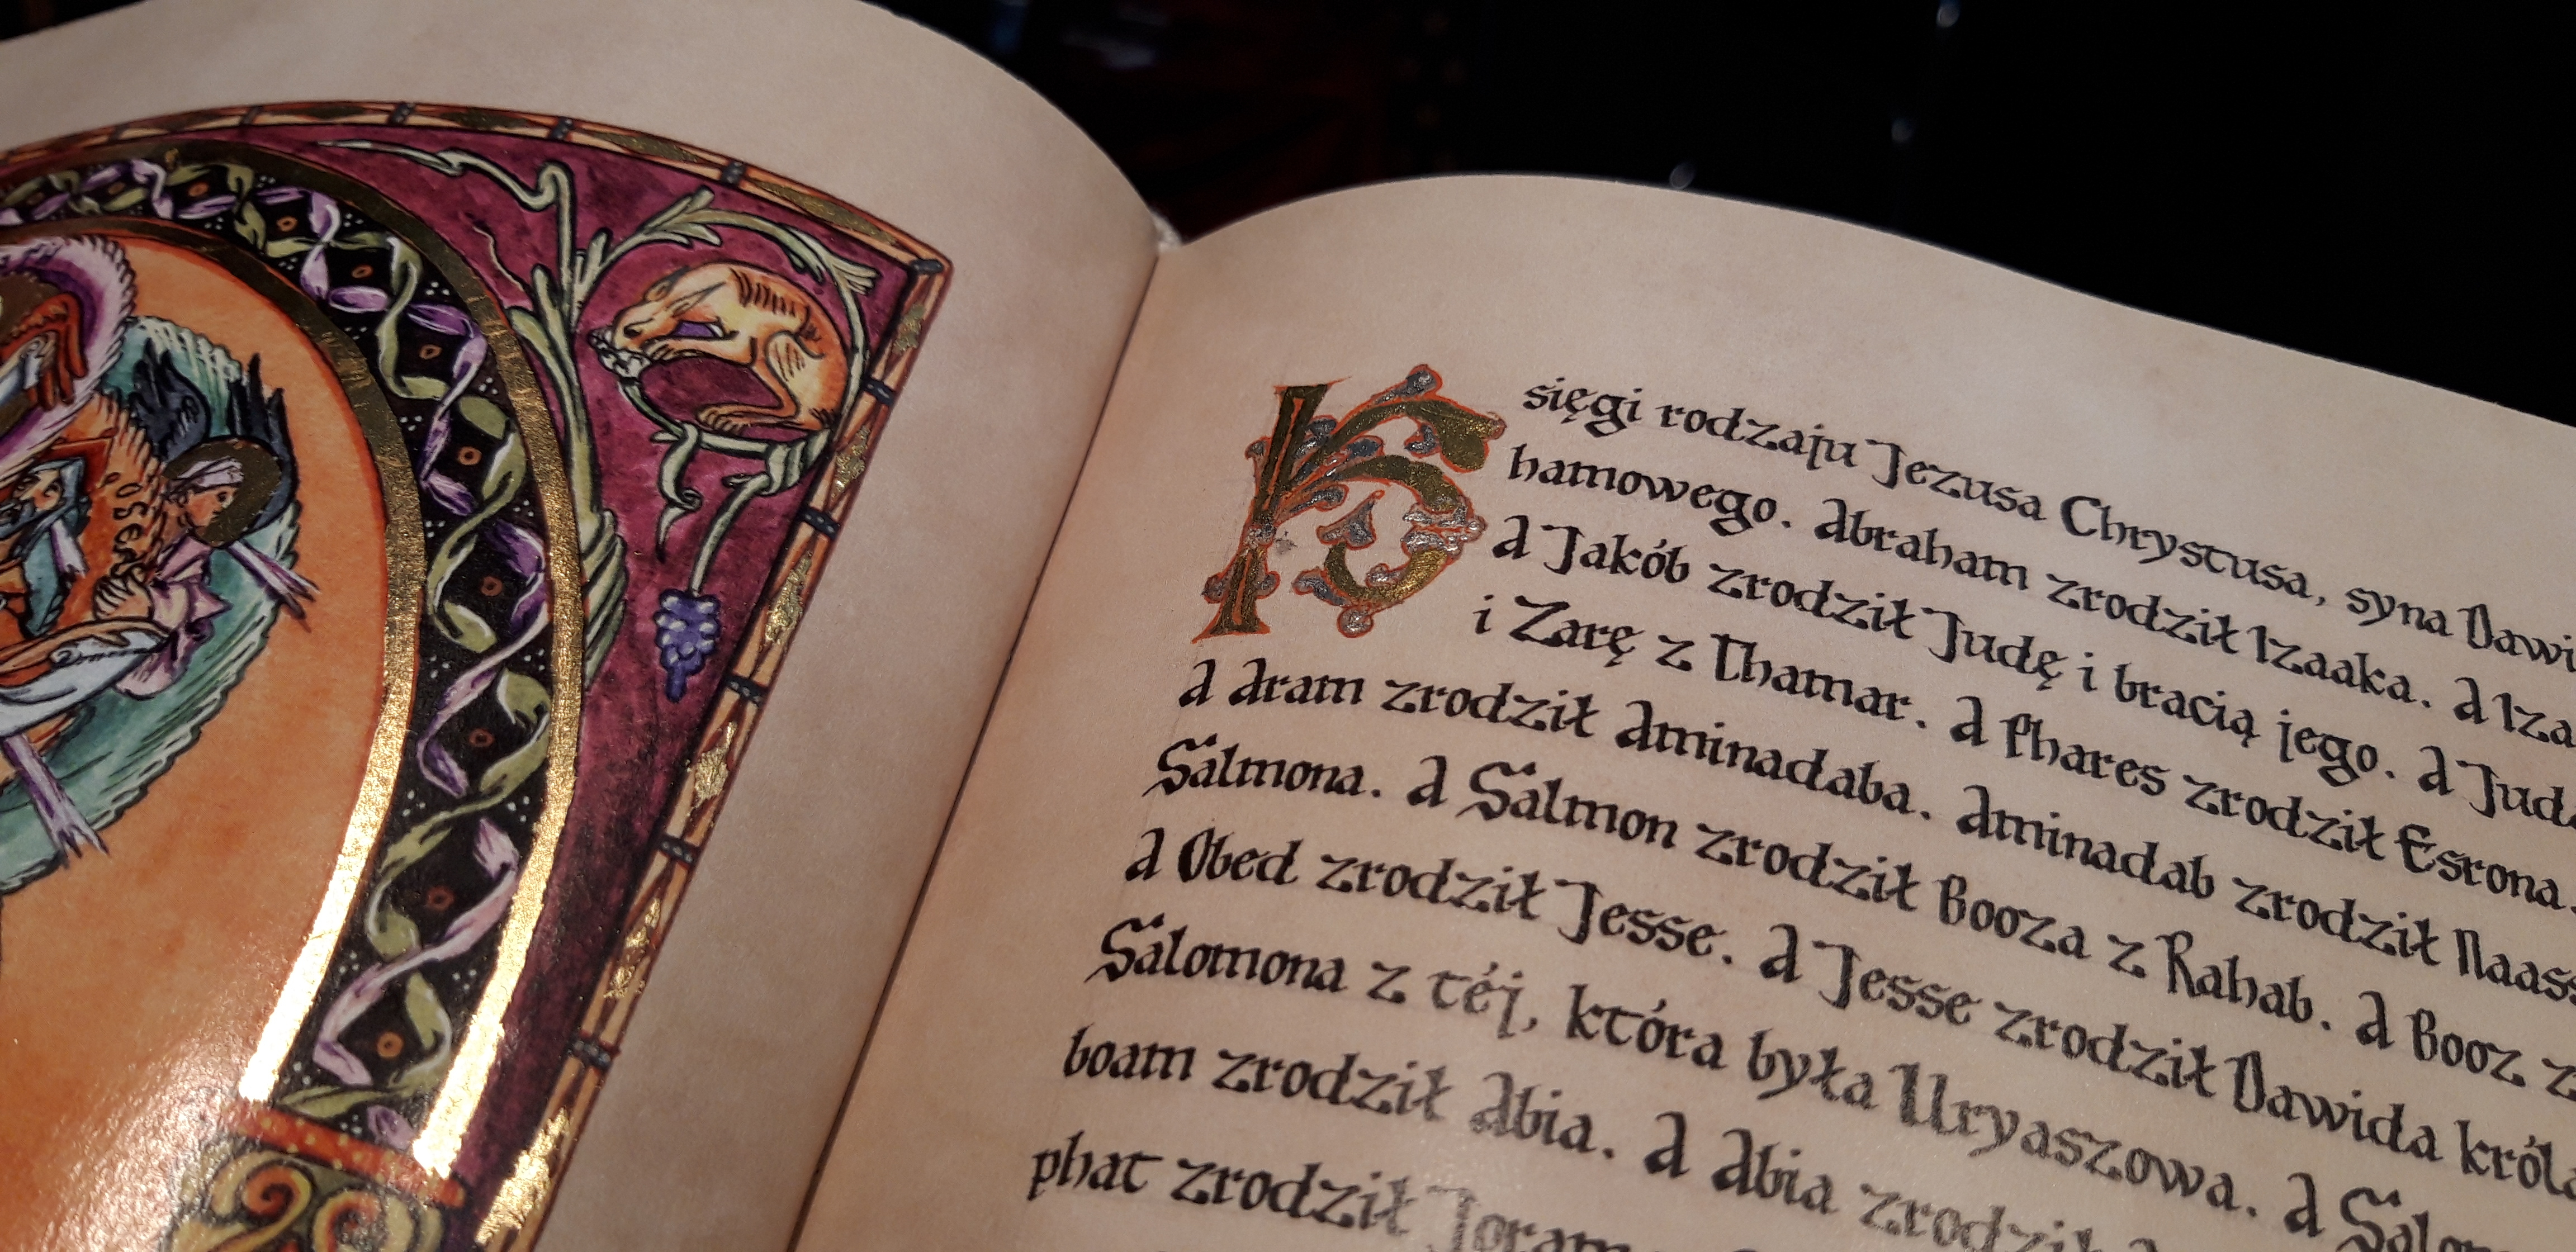 Księgi rodzaju Jezusa Chrystusa, syna
hamowego. Abraham zrodził Izaaka. A
A Jakób zrodził Judę i bracią jego. A
i Zarę z Thamar. A Phares zrodził Esrona.
A Aram zrodził Aminadaba. Aminadab zrodził
Salmona. A Salmon zrodził Booza z Rahab. A Booz
A Obed zrodził Jesse. A Jesse zrodził Dawida
Salomona z téj, która była Uryaszowa. A
boam zrodził Abia. A Abia zrodził
phat zrodził